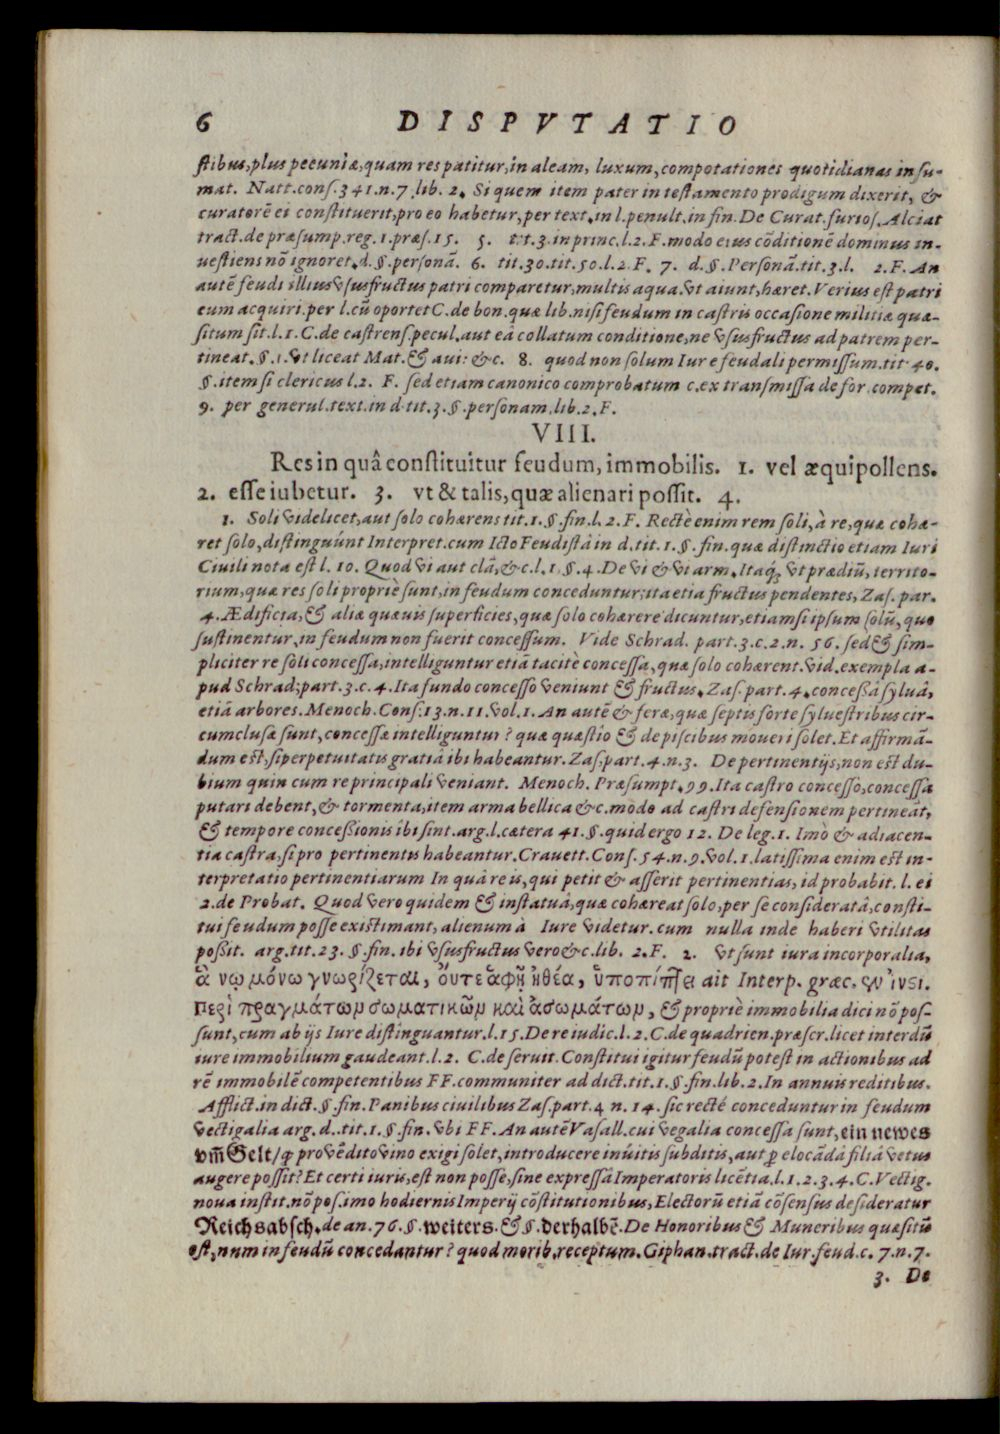 6 DISPVTATIO
ſtibus, plus pecuniæ, quam res patitur, in aleam, luxum, compotationes quotidianas inſu-
mat. Natt. conſ. 341. n. 7. lib. 2. Si quem item pater in teſtamento prodigum dixerit, &
curatorē ei conſtituerit, pro eo habetur, per text. in l. penult. in fin. De Curat. furioſ. Alciat
tract. de præſump. reg. 1. præſ. 15. 5. tit. 3. in princ. l. 2. F. modo eius cōditionē dominus in-
ueſtiens nō ignoret. d. §. perſonā. 6. tit. 30. tit. 50. l. 2. F. 7. d. §. Perſonā. tit. 3. l. 2. F. An
autē feudi illius vſusfructus patri comparetur, multis aqua. vt aiunt, hæret. Verius eſt patri
eum acquiri. per l. cū oportet C. de bon. quæ lib. niſi feudum in caſtris occaſione militiæ quæ-
ſitum ſit. l. 1. C. de caſtrenſ. pecul. aut eâ collatum conditione, ne vſusfructus ad patrem per-
tineat. §. 1. vt liceat Mat. & aui: &c. 8. quod non ſolum Iure feudali permiſſum. tit. 40.
§. item ſi clericus l. 2. F. ſed etiam canonico comprobatum c. ex tranſmiſſa de for. compet.
9. per generul. text. in d. tit. 3. §. perſonam. lib. 2. F.
VIII.
Res in quâ conſtituitur feudum, immobilis. 1. vel æquipollens.
2. eſſe iubetur. 3. vt & talis, quæ alienari poſſit. 4.
1. Soli videlicet, aut ſolo cohærens tit. 1. §. fin. l. 2. F. Rectè enim rem ſoli, à re, quæ cohæ-
ret ſolo, diſtinguúnt Interpret. cum Icto Feudiſtâ in d. tit. 1. §. fin. quæ diſtinctio etiam Iuri
Ciuili nota eſt l. 10. Quod vi aut clā, &c. l. 1. §. 4. De vi & vi arm. Itaq́; vt prædiū, territo-
rium, quæ res ſoli propriè ſunt, in feudum conceduntur; ita etia fructus pendentes, Zaſ. par.
4. Ædificia, & aliæ quæuis ſuperficies, quæ ſolo cohærere dicuntur, etiamſi ipſum ſolū, quo
ſuſtinentur, in feudum non fuerit conceſſum. Vide Schrad. part. 3. c. 2. n. 56. ſed & ſim-
pliciter re ſoli conceſſa, intelliguntur etiā tacitè conceſſa, quæ ſolo cohærent. vid. exempla a-
pud Schrad; part. 3. c. 4. Ita fundo conceſſo veniunt & fructus. Zaſ. part. 4. conceßâ ſyluâ,
etiā arbores. Menoch. Conſ. 13. n. 11. vol. 1. An autē & feræ, quæ ſeptis forte ſylueſtribus cir-
cumcluſæ ſunt, conceſſæ intelliguntur? quæ quæſtio & de piſcibus moueri ſolet. Et affirmā-
dum eſt, ſi perpetuitatis gratiâ ibi habeantur. Zaſ. part. 4. n. 3. De pertinentijs, non eſt du-
bium quin cum re principali veniant. Menoch. Præſumpt. 99. Ita caſtro conceſſo, conceſſa
putari debent, & tormenta, item arma bellica &c. modo ad caſtri defenſionem pertineāt,
& tempore conceßionis ibi ſint. arg. l. cætera 41. §. quid ergo 12. De leg. 1. Imò & adiacen-
tia caſtra, ſi pro pertinentis habeantur. Crauett. Conſ. 54. n. 9. vol. 1. latiſſima enim eſt in-
terpretatio pertinentiarum In quâ re is, qui petit & aſſerit pertinentias, id probabit. l. ei
2. de Probat. Quod vero quidem & in ſtatuâ, quæ cohæreat ſolo, per ſe conſideratâ, conſti-
tui feudum poſſe exiſtimant, alienum à Iure videtur. cum nulla inde haberi vtilitas
poßit. arg. tit. 23. §. fin. ibi vſusfructus vero &c. lib. 2. F. 2. vt ſunt iura incorporalia,
ἃ νῳ μόνῳ γνωρίζεται, ὄυτε ἁφῇ ἠ θέα, ὑποπίπτει ait Interp. græc. ἐν ἰνςι.
περὶ πραγμάτων σωματικῶν καὶ ἀσωμάτων, & propriè immobilia dici nō poſ-
ſunt, cum ab ijs Iure diſtinguantur. l. 15. De re iudic. l. 2. C. de quadrien. præſcr. licet interdū
iure immobilium gaudeant. l. 2. C. de ſeruit. Conſtitui igitur feudū poteſt in actionibus ad
rē immobilē competentibus FF. communiter ad dict. tit. 1. §. fin. lib. 2. In annuis reditibus.
Afflict. in dict. §. fin. Panibus ciuilibus Zaſ. part. 4 n. 14. ſic recté conceduntur in feudum
vectigalia arg. d. tit. 1. §. fin. vbi FF. An autē Vaſall. cui vegalia conceſſa ſunt, ein newes
vm̄ Gelt/ q̃ pro vēdito vino exigi ſolet, introducere inúitis ſubditis, aut ꝑ elocādâ filiâ vetus
augere poſſit? Et certi iuris, eſt non poſſe, ſine expreſſâ Imperatoris licētia. l. 1. 2. 3. 4. C. Vectig.
noua inſtit. nō poſ. imo hodiernis Imperij cōſtitutionibus, Electorū etiā cōſenſus deſideratur
Reichsabſch. de an. 76. §. weiters. & §. derhalbē. De Honoribus & Muneribus quæſitū
eſt, num in feudū concedantur? quod morib. receptum. Giphan. tract. de Iur. feud. c. 7. n. 7.
3. De